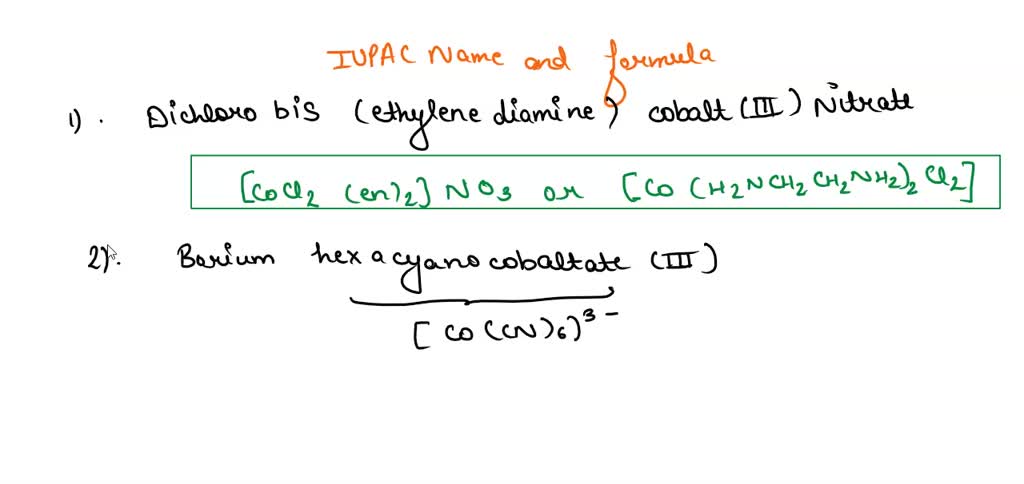 IUPAC Name and formula
1). Dichloro bis (ethylene diamine) cobalt (III) Nitrate
[CoCl2 (en)2] NO3 or [Co (H2NCH2CH2NH2)2Cl2]
2). Barium hexacyanocobaltate (III)
[Co(CN)6)3-